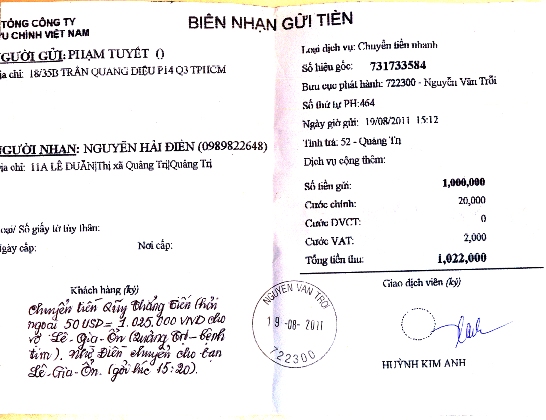 TỔNG CÔNG TY
BƯU CHÍNH VIỆT NAM
BIÊN NHẬN GỬI TIỀN
NGƯỜI GỬI: PHẠM TUYẾT ()
Địa chỉ: 18/35B TRẦN QUANG DIỆU P14 Q3 TPHCM
NGƯỜI NHẬN: NGUYỄN HẢI ĐIỀN (0989822648)
Địa chỉ: 11A LÊ DUẨN|Thị xã Quảng Trị|Quảng Trị
Loại/ Số giấy tờ tùy thân:
Ngày cấp: Nơi cấp:
Khách hàng (ký)
Chuyển tiền Quỹ Thăng Tiến (hải
ngoại 50USD = 1.025.000 VND cho
vợ Lê-Gia-Ổn (Quảng Trị - bệnh
tim). Nhờ Điền chuyển cho bạn
Lê-Gia-Ổn. (gởi lúc 15:20).
Loại dịch vụ: Chuyển tiền nhanh
Số hiệu gốc: 731733584
Bưu cục phát hành: 722300 - Nguyễn Văn Trỗi
Số thứ tự PH:464
Ngày giờ gửi: 19/08/2011 15:12
Tỉnh trả: 52 - Quảng Trị
Dịch vụ cộng thêm:
Số tiền gửi: 1,000,000
Cước chính: 20,000
Cước DVCT: 0
Cước VAT: 2,000
Tổng tiền thu: 1,022,000
Giao dịch viên (ký)
NGUYỄN VĂN TRỖI
19-08-2011
722300
HUỲNH KIM ANH